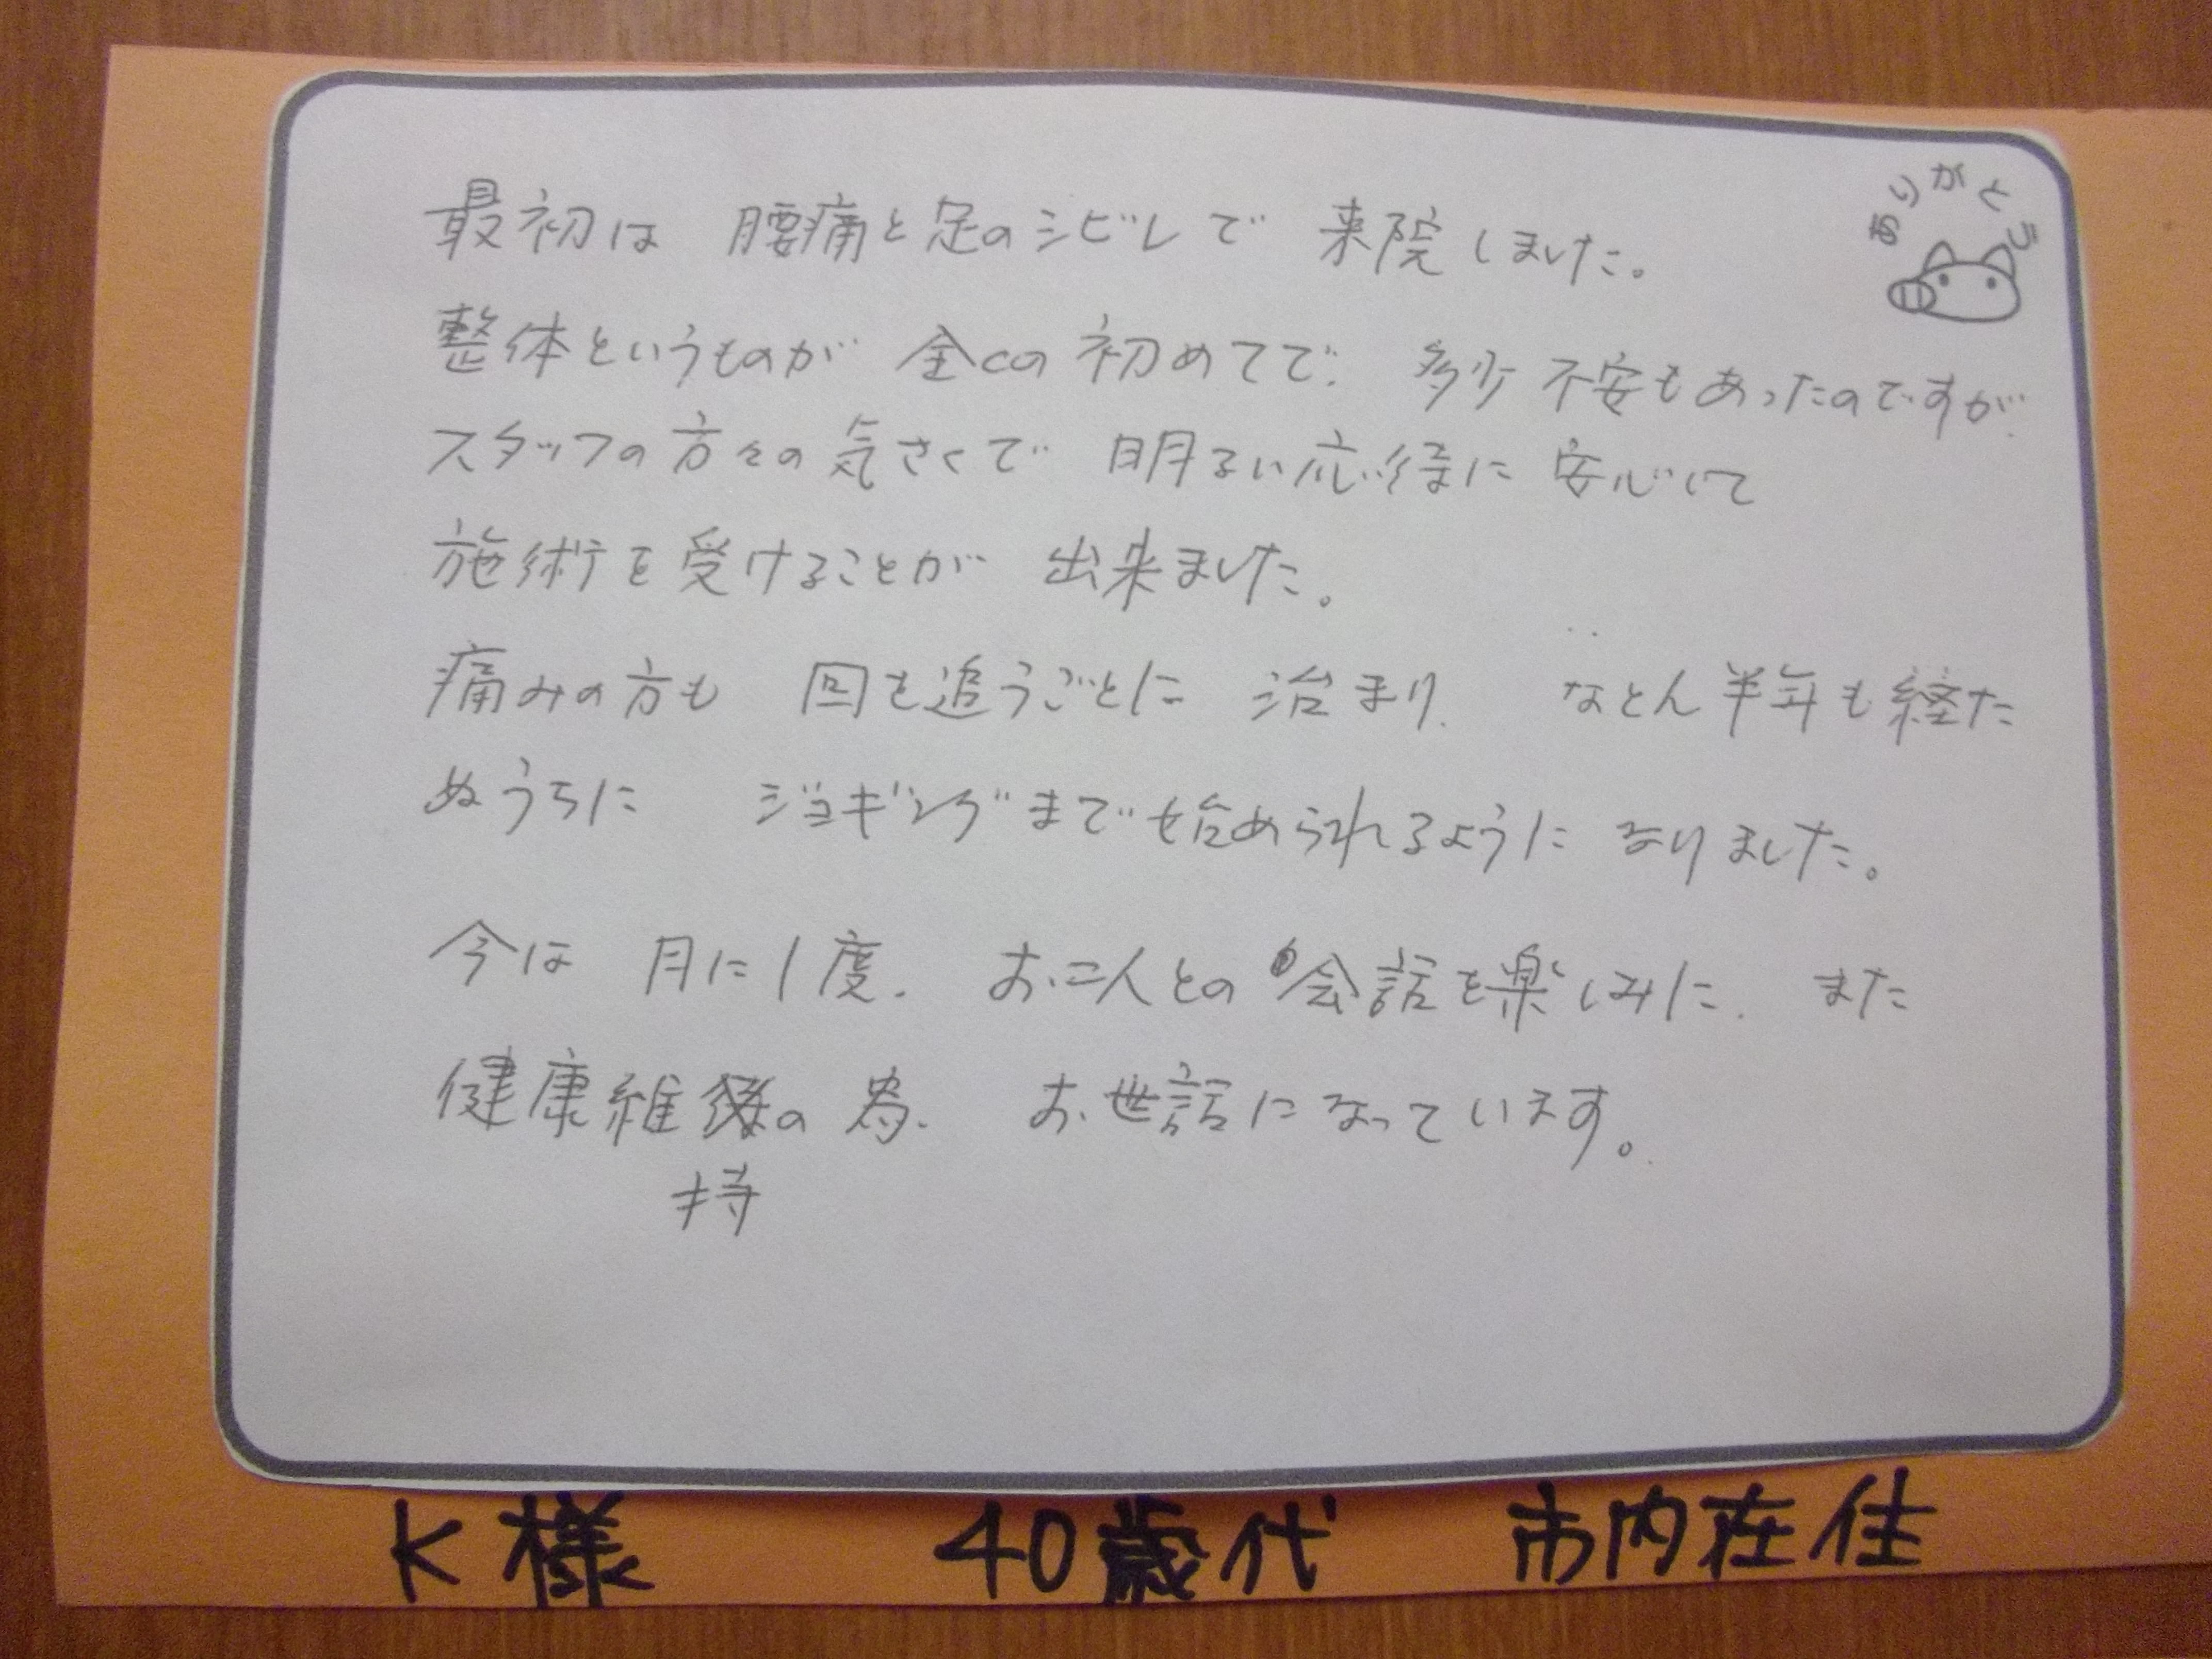 ありがとう
最初は 腰痛と足のシビレで 来院しました。
整体というものが 全くの初めてで、多少不安もあったのですが、
スタッフの方々の気さくで 明るい応待に 安心して
施術を受けることが 出来ました。
痛みの方も 回を追うごとに 治まり、 なとん半年も経た
ぬうちに ジョギングまで始められるように なりました。
今は 月に1度、 お二人との会話を楽しみに、 また
健康維の為、 お世話になっています。
持
K様 40歳代 市内在住